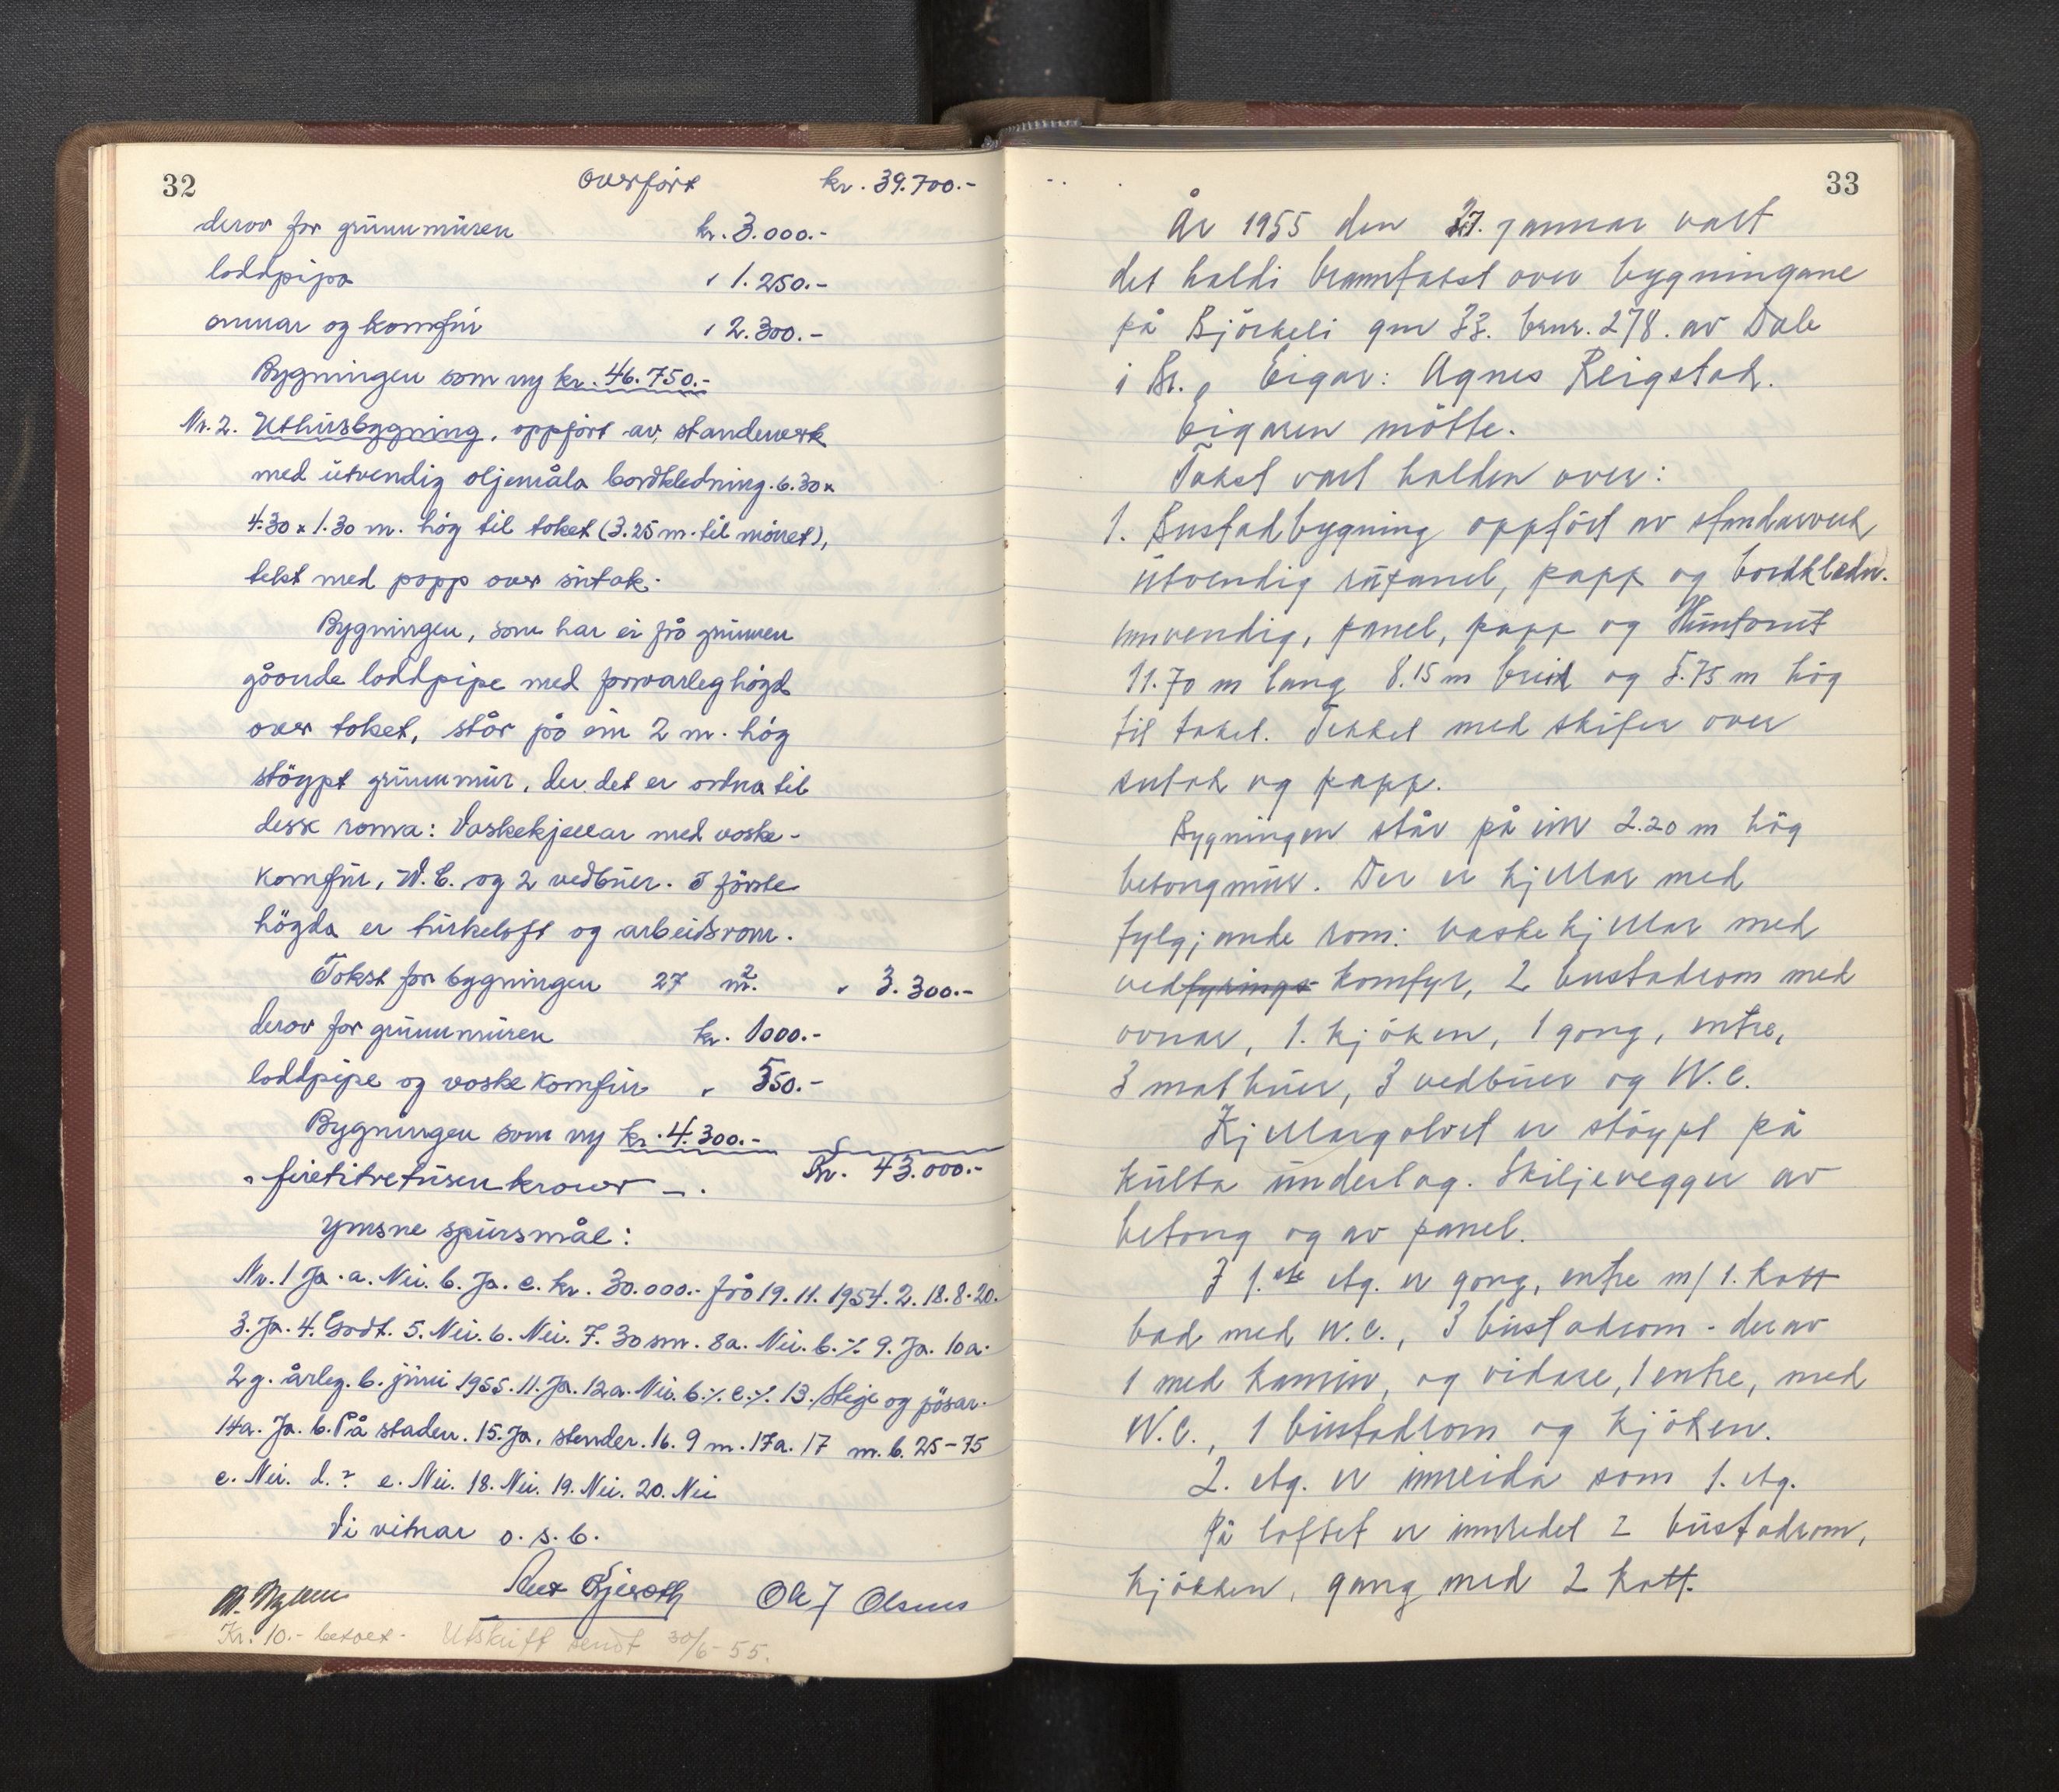 32
Overført kr. 39.700.-
derav for grunnmuren kr. 3.000.-
loddpipa " 1.250.-
omnar og komfur " 2.300.-
Bygningen som ny kr. 46.750.-
Nr. 2. Uthusbygning, oppført av standerverk
med utvendig oljemåla bordkledning. 6.30 x
4.30 x 1.30 m. høg til taket (3.25 m. til mønet),
tekt med papp over sutak.
Bygningen, som har ei frå grunnen
gåande loddpipe med forsvarleg høgd
over taket, står på ein 2 m. høg
støypt grunnmur, der det er ordna til
desse romra: Vaskekjellar med vaske-
komfur, W.C. og 2 vedbuer. I fyrste
høgda er turkeloft og arbeidsrom.
Takst for bygningen 27 m². " 3.300.-
derav for grunnmuren kr. 1000.-
loddpipe og vaskekomfur " 550.-
Bygningen som ny kr. 4.300.-
Kr. 43.000.-
- firetitretusen kroner - .
Ymsne spursmål:
Nr. 1 Ja. a. Nei. b. Ja. c. kr. 30.000.- frå 19.11.1954. 2. 18.8.20.
3. Ja. 4. Godt. 5. Nei. 6. Nei. 7. 30 sm. 8a. Nei. b. ٪ 9. Ja. 10a.
2 g. årleg. b. juni 1955. 11. Ja. 12a. Nei. b. ٪ c. ٪. 13. Stige og pøsar.
14a. Ja. b. På staden. 15. Ja, stender. 16. 9 m. 17a. 17 m. b. 25-75
c. Nei. d. ? e. Nei. 18. Nei. 19. Nei. 20. Nei
Vi vitnar o. s. b.
Ole J Olsnes
Kr. 10.- betalt. Utskrift sendt 30/6-55.
33
År 1955 den 27. januar vart
det haldi branntakst over bygningane
på Björkeli gnr 33. brnr. 278. av Dale
i Br. Eigar: Agnes Reigstad.
Eigaren mötte.
Takst vart halden over:
1. Bustadbygning oppfört av standarverk
utvendig rupanel, papp og bordkledn.
innvendig, panel, papp og Huntonit
11.70 m lang 8.15 m breid og 5.75 m hög
til taket. Tekket med skifer over
sutak og papp.
Bygningen står på ein 2.20 m hög
betongmur. Der er kjellar med
fylgjande rom: vaskekjellar med
vedfyrings komfyr, 2 bustadrom med
ovnar, 1. kjöken, 1 gong, entre,
3 matbuer, 3 vedbuer og W.C.
Kjellargolvet er stöypt på
kulta underlag. Skiljevegger av
betong og av panel.
I 1.ste etg. er gong, entre m/ 1. kott
bad med W.C., 3 bustadrom - derav
1 med kamin, og vidare, 1 entre, med
W.C., 1 bustadrom og kjöken.
2. etg. er innreida som 1. etg.
På loftet er innredet 2 bustadrom,
kjökken, gang med 2 kott.